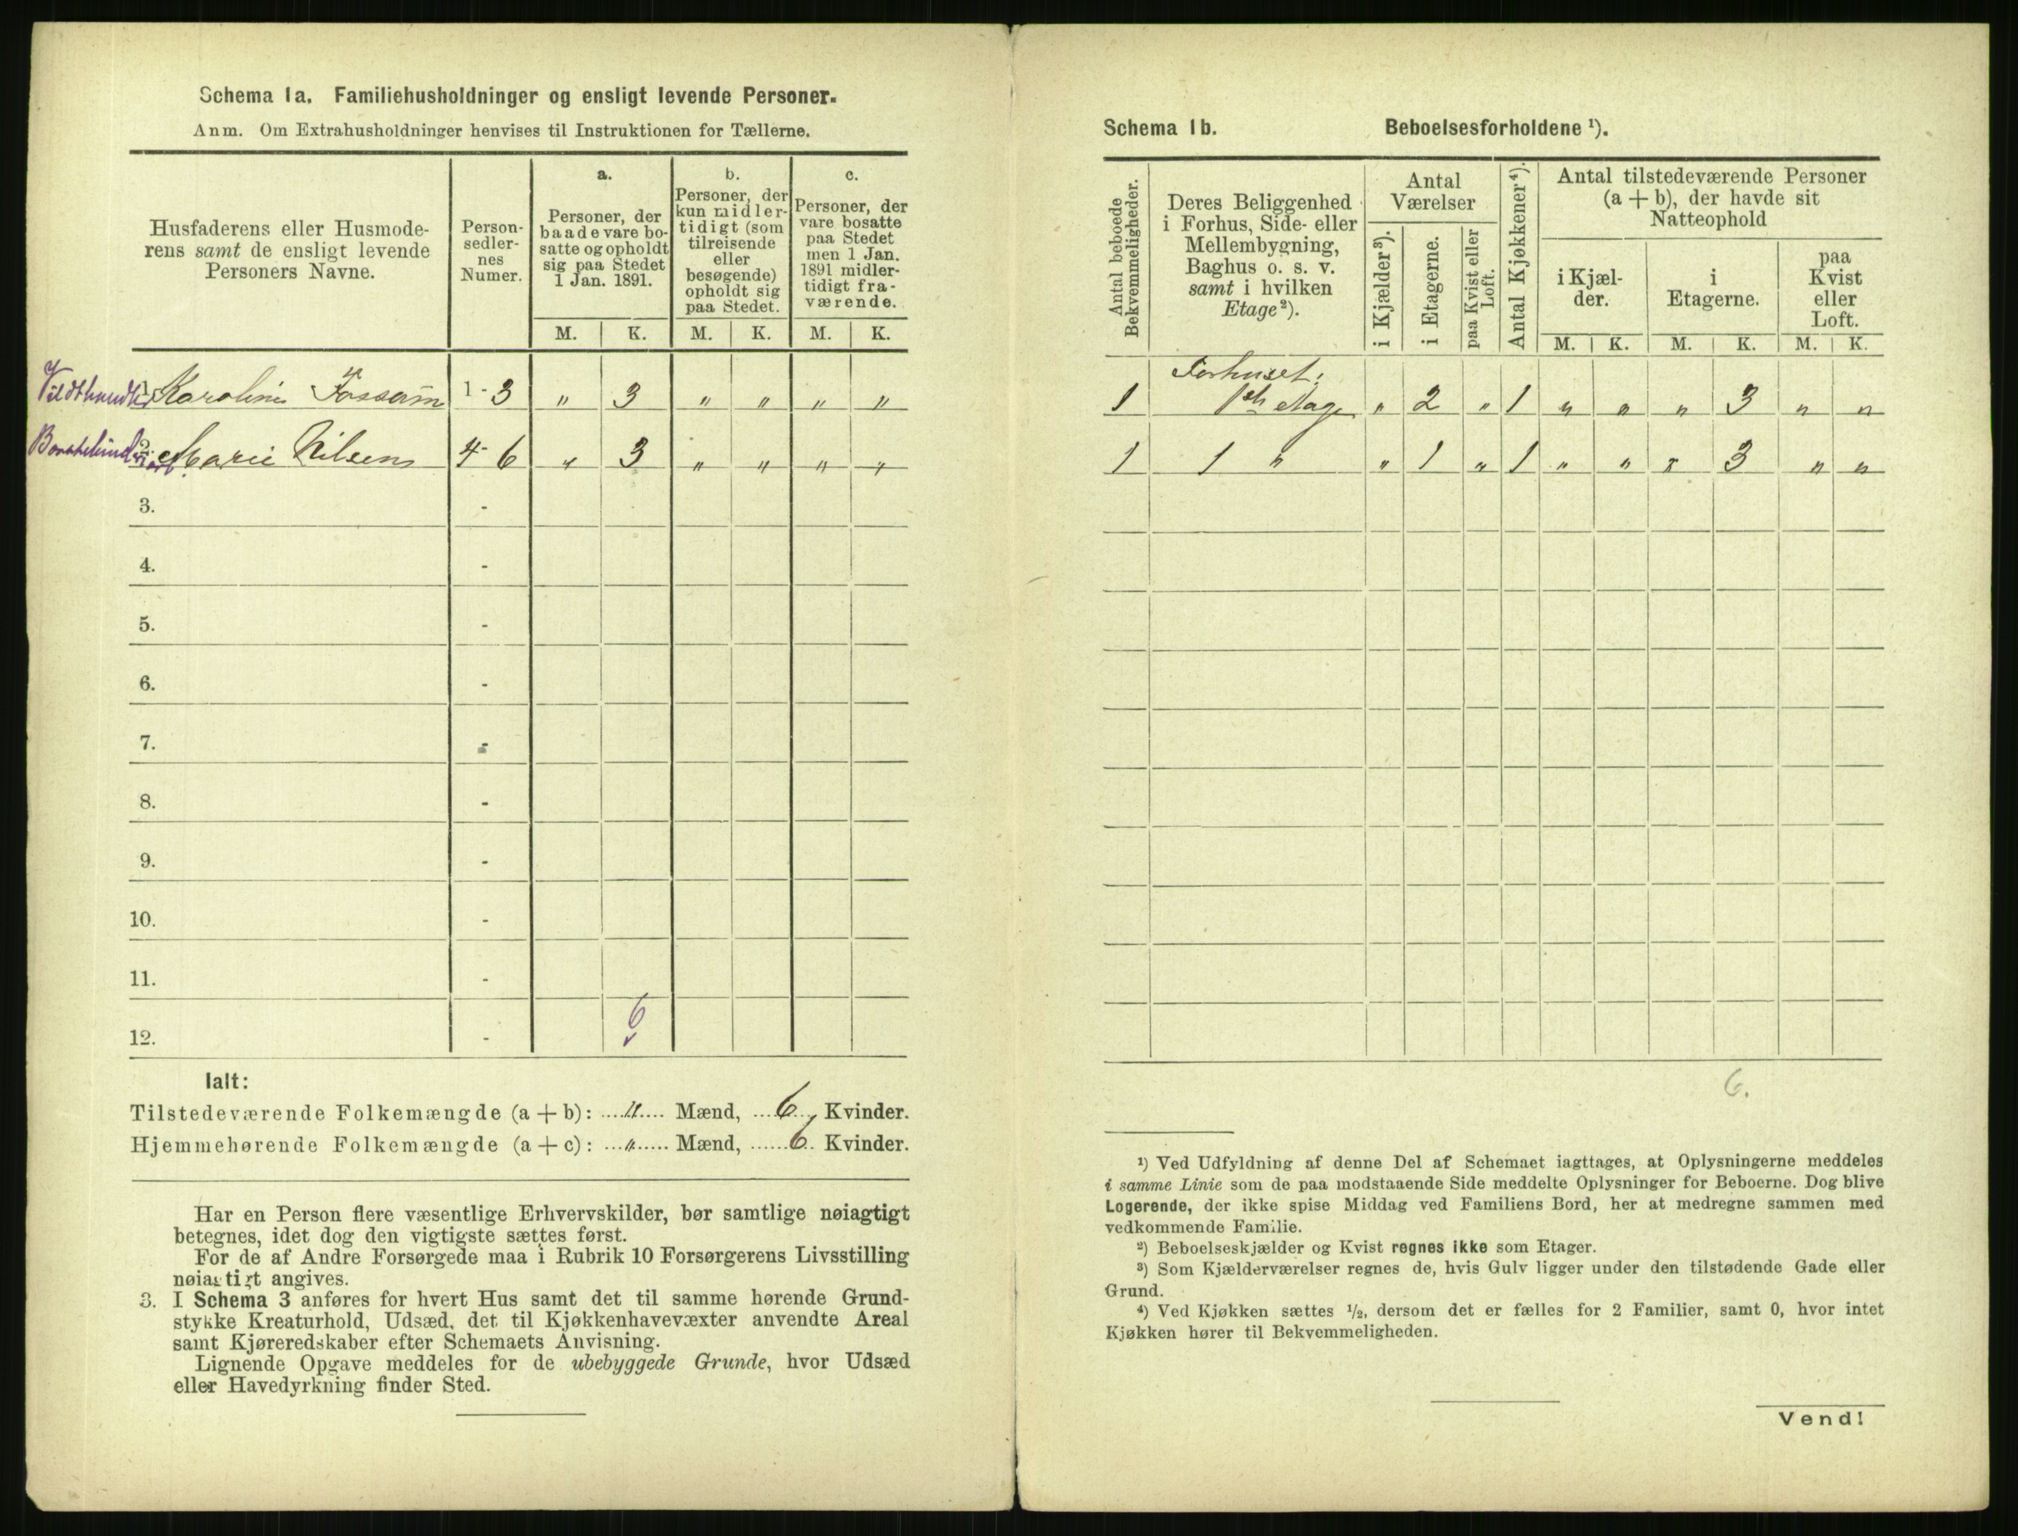 Schema 1a. Familiehusholdninger og ensligt levende Personer.
Anm. Om Extrahusholdninger henvises til Instruktionen for Tællerne.
Husfaderens eller Husmoderens samt de ensligt levende Personers Navne.
Personsedlernes Numer.
a.
Personer, der baade vare bosatte og opholdt sig paa Stedet 1 Jan. 1891.
b.
Personer, der kun midlertidigt (som tilreisende eller besøgende) opholdt sig paa Stedet.
c.
Personer, der vare bosatte paa Stedet men 1 Jan. 1891 midlertidigt fraværende.
M. K. M. K. M. K.
Karoline Fossum 1-3 „ 3 „ „ „ „
Marie Nilsen 4-6 „ 3 „ „ „ „
3. -
4. -
5. -
6. -
7. -
8. -
9. -
10. -
11. -
12. - 6
Ialt:
Tilstedeværende Folkemængde (a + b): „ Mænd, 6 Kvinder.
Hjemmehørende Folkemængde (a + c): „ Mænd, 6 Kvinder.
Har en Person flere væsentlige Erhvervskilder, bør samtlige nøiagtigt
betegnes, idet dog den vigtigste sættes først.
For de af Andre Forsørgede maa i Rubrik 10 Forsørgerens Livsstilling
nøiagtigt angives.
3. I Schema 3 anføres for hvert Hus samt det til samme hørende Grund-
stykke Kreaturhold, Udsæd, det til Kjøkkenhavevæxter anvendte Areal
samt Kjøreredskaber efter Schemaets Anvisning.
Lignende Opgave meddeles for de ubebyggede Grunde, hvor Udsæd
eller Havedyrkning finder Sted.
Schema 1b. Beboelsesforholdene ¹).
Antal beboede Bekvemmeligheder.
Deres Beliggenhed i Forhus, Side- eller Mellembygning, Baghus o. s. v. samt i hvilken Etage²).
Antal Værelser
i Kjælder³).
i Etagerne.
paa Kvist eller Loft.
Antal Kjøkkener⁴).
Antal tilstedeværende Personer (a + b), der havde sit Natteophold
i Kjælder.
i Etagerne.
paa Kvist eller Loft.
M. K. M. K. M. K.
Forhuset,
1 1ste Etage „ 2 „ 1 „ „ „ 3 „ „
1 1 „ „ 1 „ 1 „ „ „ 3 „ „
6.
¹) Ved Udfyldning af denne Del af Schemaet iagttages, at Oplysningerne meddeles
i samme Linie som de paa modstaaende Side meddelte Oplysninger for Beboerne. Dog blive
Logerende, der ikke spise Middag ved Familiens Bord, her at medregne sammen med
vedkommende Familie.
²) Beboelseskjælder og Kvist regnes ikke som Etager.
³) Som Kjælderværelser regnes de, hvis Gulv ligger under den tilstødende Gade eller
Grund.
⁴) Ved Kjøkken sættes ½, dersom det er fælles for 2 Familier, samt 0, hvor intet
Kjøkken hører til Bekvemmeligheden.
Vend!